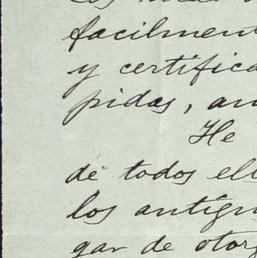 facilmen
y certifica
pidas, an
He
de todos ell
los antigu
gar de otor